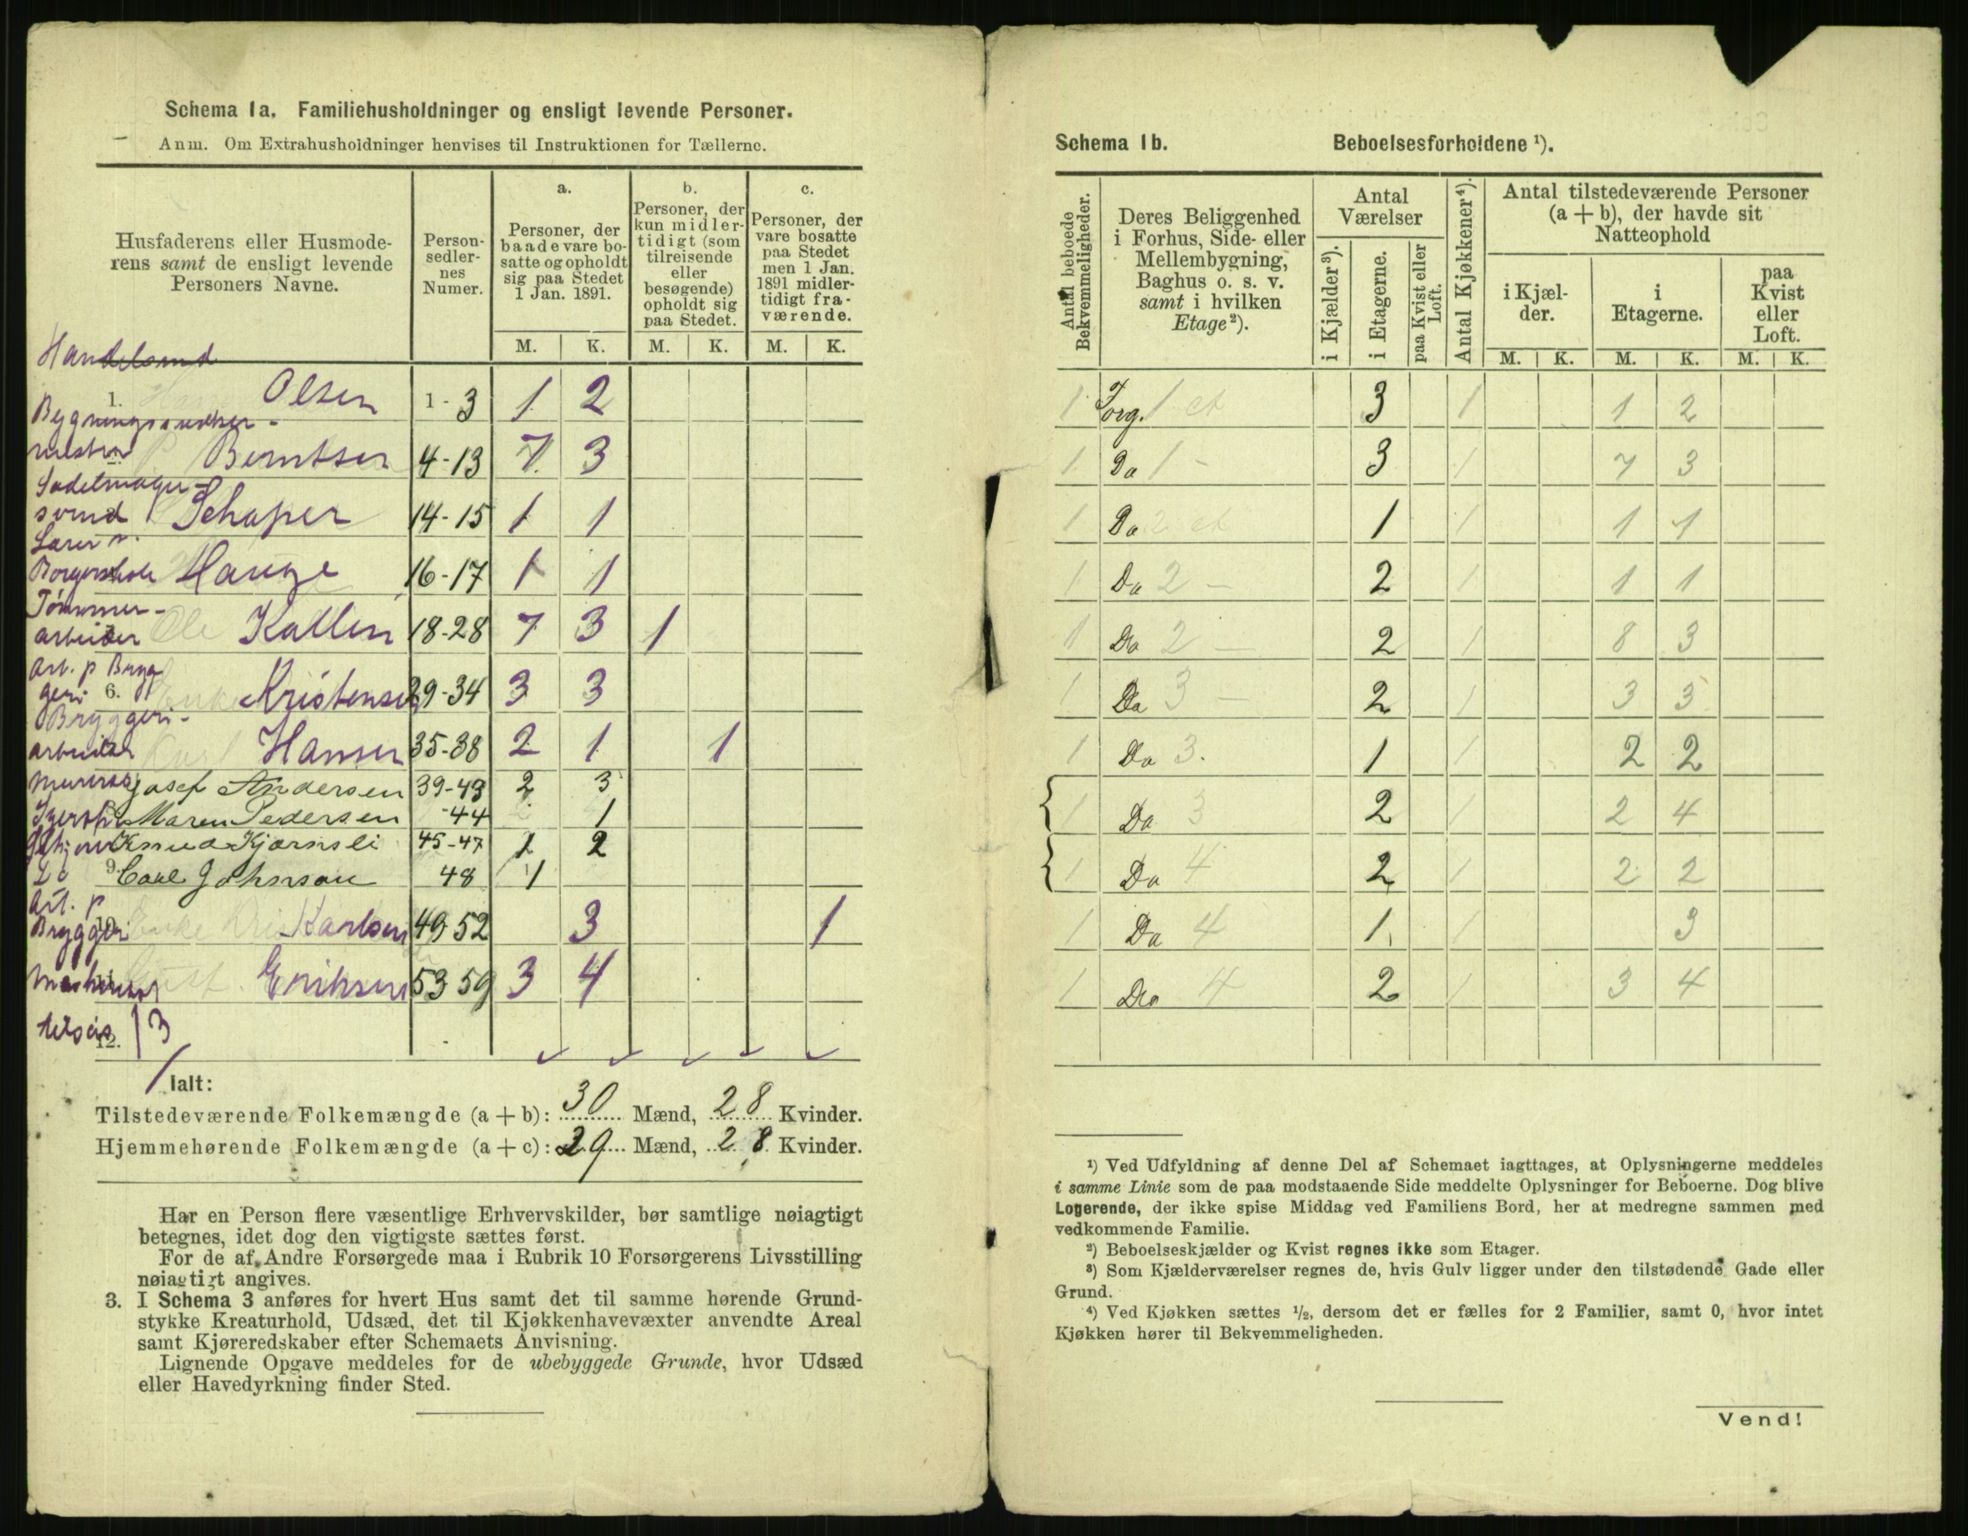 Schema 1a. Familiehusholdninger og ensligt levende Personer.
Anm. Om Extrahusholdninger henvises til Instruktionen for Tællerne.
Husfaderens eller Husmode-
rens samt de ensligt levende
Personers Navne.
Person-
sedler-
nes
Numer.
a.
Personer, der
baade vare bo-
satte og opholdt
sig paa Stedet
1 Jan. 1891.
b.
Personer, der
kun midler-
tidigt (som
tilreisende
eller
besøgende)
opholdt sig
paa Stedet.
c.
Personer, der
vare bosatte
paa Stedet
men 1 Jan.
1891 midler-
tidigt fra-
værende.
M. K. M. K. M. K.
Handelsmd
1. Olsen 1-3 1 2
Bygningssnedker-
mester Berntsen 4-13 7 3
Sadelmager-
svend Schaper 14-15 1 1
Lærer v.
Borgerskole Hauge 16-17 1 1
Tømmer-
arbeider Ole Kallin 18-28 7 3 1
Arb. p Bryg
geri 6. Enke Kristensen 29-34 3 3
Bryggeri-
arbeider Karl Hansen 35-38 2 1 1
Josef Andersen 39-43 2 3
Maren Pedersen 44 1
Knud Kjærnsli 45-47 1 2
Do 9. Carl Johnson 48 1
Arb. p
Bryggeri 10. Enke Karlsen 49-52 3 1
11. Eriksen 53-59 3 4
12. 13
Ialt:
Tilstedeværende Folkemængde (a + b): 30 Mænd, 28 Kvinder.
Hjemmehørende Folkemængde (a + c): 29 Mænd, 28 Kvinder.
Har en Person flere væsentlige Erhvervskilder, bør samtlige nøiagtigt
betegnes, idet dog den vigtigste sættes først.
For de af Andre Forsørgede maa i Rubrik 10 Forsørgerens Livsstilling
nøiagtigt angives.
3. I Schema 3 anføres for hvert Hus samt det til samme hørende Grund-
stykke Kreaturhold, Udsæd, det til Kjøkkenhavevæxter anvendte Areal
samt Kjøreredskaber efter Schemaets Anvisning.
Lignende Opgave meddeles for de ubebyggede Grunde, hvor Udsæd
eller Havedyrkning finder Sted.
Schema 1b. Beboelsesforholdene ¹).
Antal beboede
Bekvemmeligheder.
Deres Beliggenhed
i Forhus, Side- eller
Mellembygning,
Baghus o. s. v.
samt i hvilken
Etage²).
Antal
Værelser
i Kjælder³).
i Etagerne.
paa Kvist eller
Loft.
Antal Kjøkkener⁴).
Antal tilstedeværende Personer
(a + b), der havde sit
Natteophold
i Kjæl-
der.
i
Etagerne.
paa
Kvist
eller
Loft.
M. K. M. K. M. K.
1 Forg. 1 et 3 1 1 2
1 Do 1 - 3 1 7 3
1 Do 2 et 1 1 1 1
1 Do 2 - 2 1 1 1
1 Do 2 - 2 1 8 3
1 Do 3 - 2 1 3 3
1 Do 3. 1 1 2 2
1 Do 3 2 1 2 4
1 Do 4 2 1 2 2
1 Do 4 1 1 3
1 Do 4 2 1 3 4
¹) Ved Udfyldning af denne Del af Schemaet iagttages, at Oplysningerne meddeles
i samme Linie som de paa modstaaende Side meddelte Oplysninger for Beboerne. Dog blive
Logerende, der ikke spise Middag ved Familiens Bord, her at medregne sammen med
vedkommende Familie.
²) Beboelseskjælder og Kvist regnes ikke som Etager.
³) Som Kjælderværelser regnes de, hvis Gulv ligger under den tilstødende Gade eller
Grund.
⁴) Ved Kjøkken sættes ½, dersom det er fælles for 2 Familier, samt 0, hvor intet
Kjøkken hører til Bekvemmeligheden.
Vend!